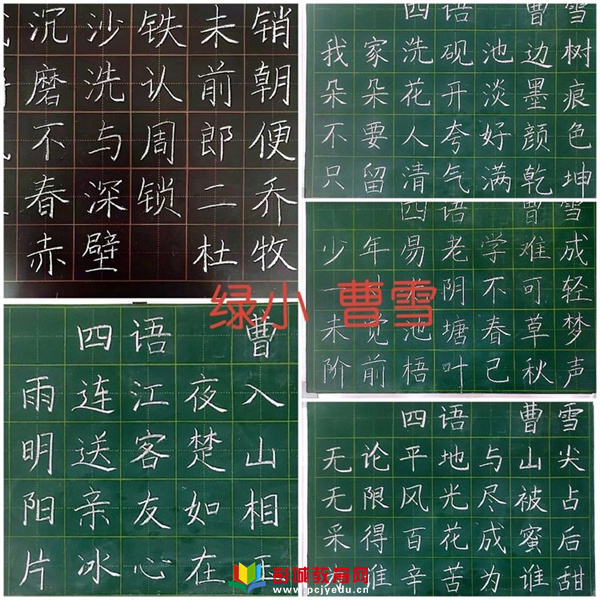 沉沙铁未销
磨洗认前朝
不与周郎便
春深锁二乔
赤壁 杜牧
四语 曹雪
我家洗砚池边树
朵朵花开淡墨痕
不要人夸好颜色
只留清气满乾坤
四语 曹雪
少年易老学难成
一 阴不可轻
未觉池塘春草梦
阶前梧叶已秋声
绿小 曹雪
四语 曹
雨连江夜入
明送客楚山
阳亲友如相
片冰心在
四语 曹雪
无论平地与山尖
无限风光尽被占
采得百花成蜜后
谁辛苦为谁甜
彭城教育网
www.pcjyedu.cn